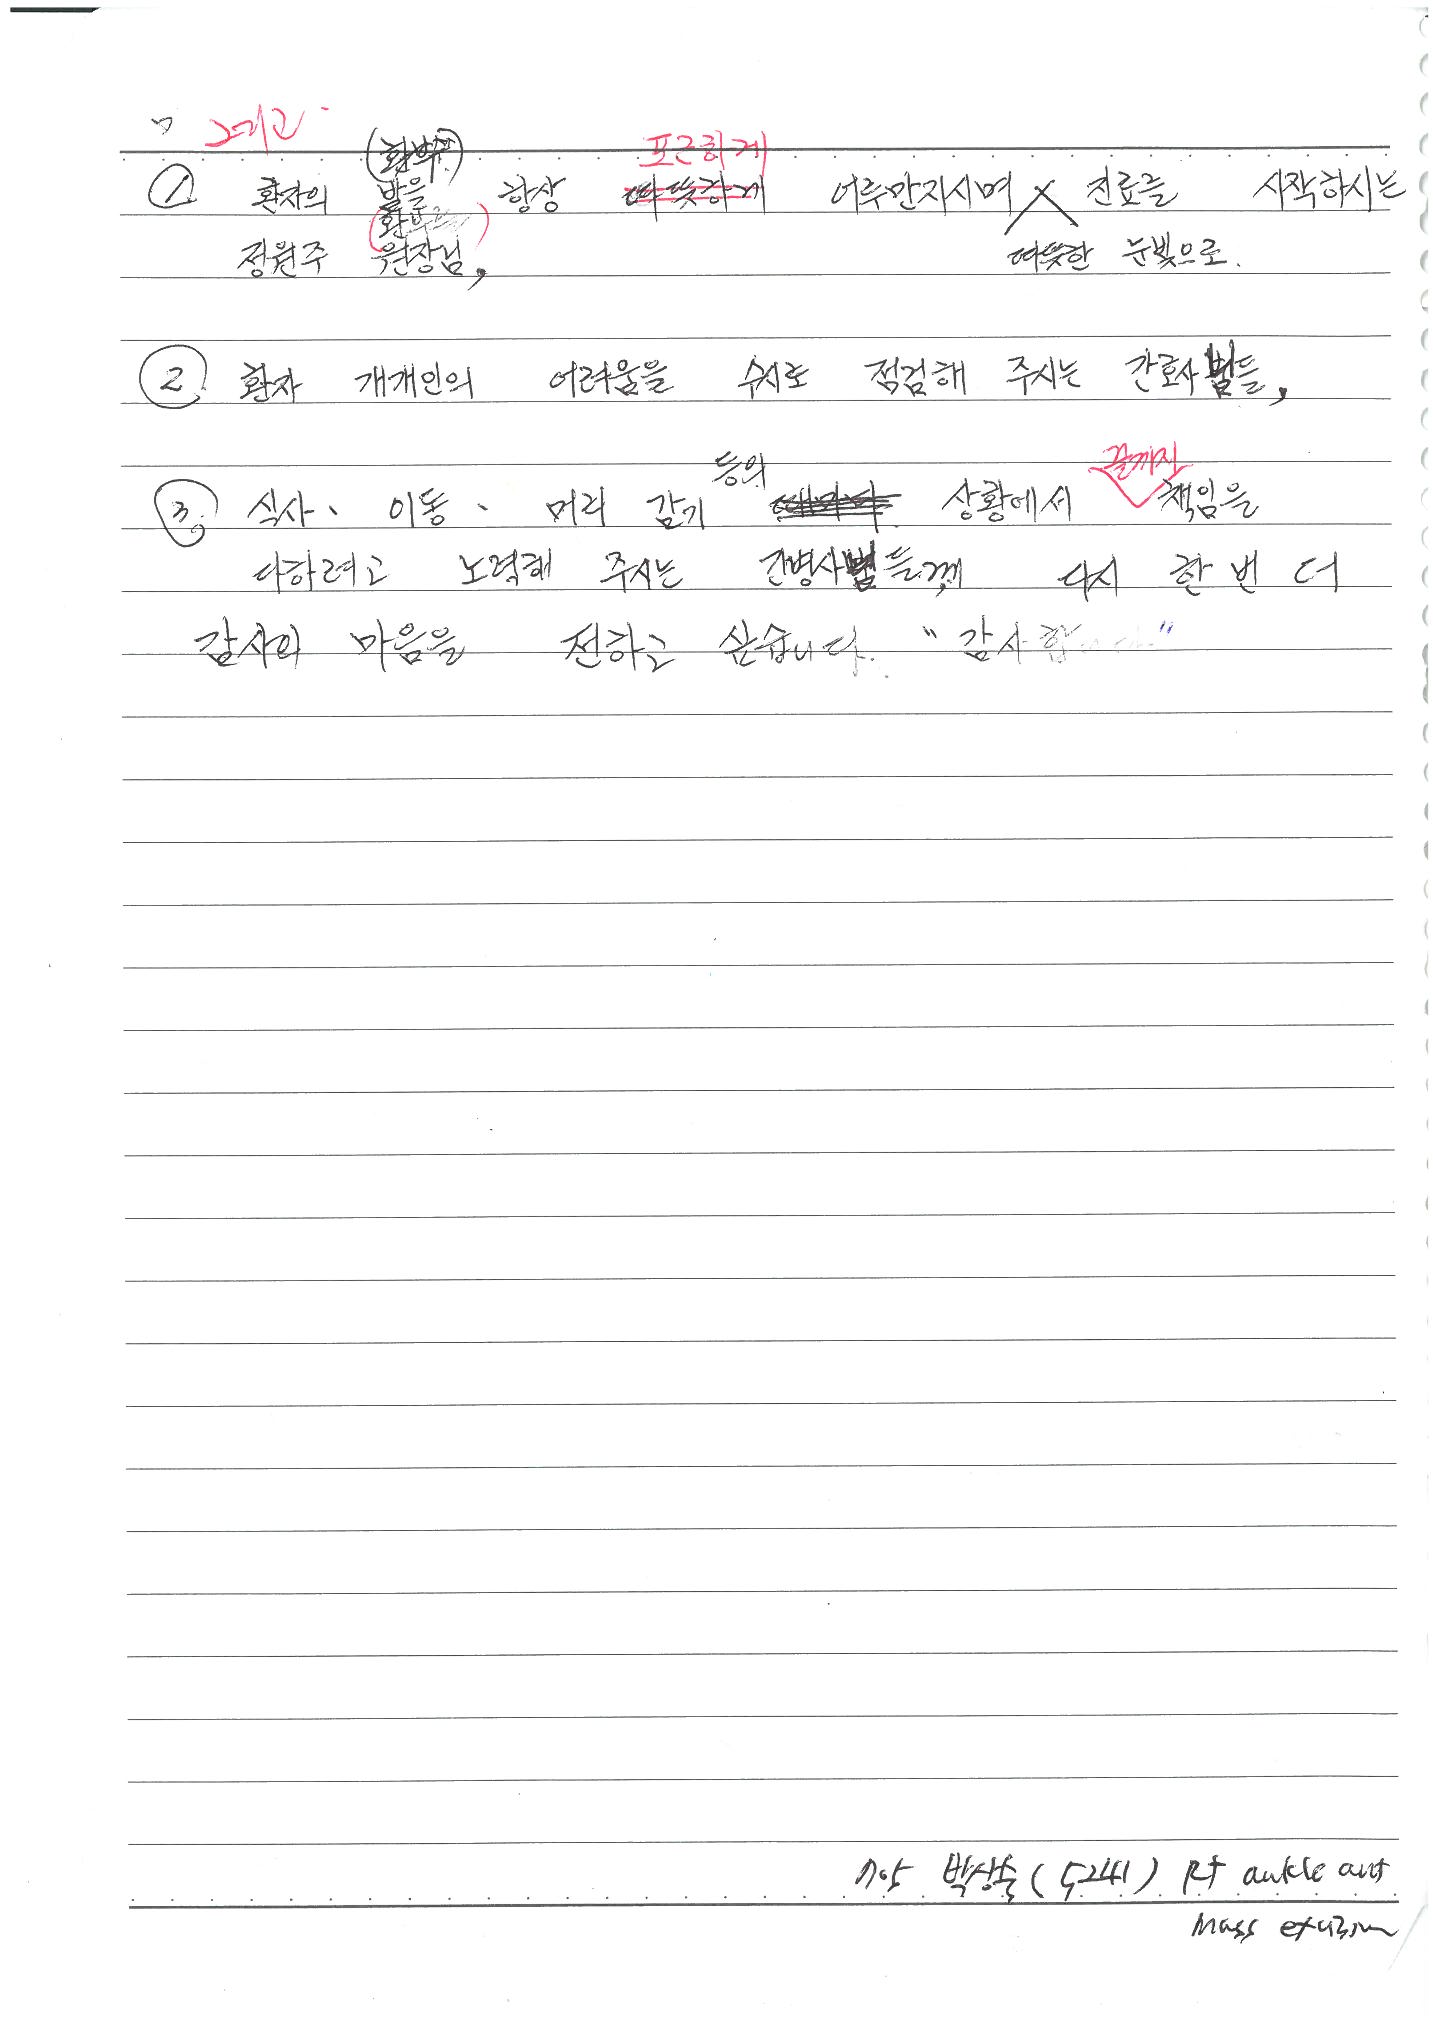 그리고
(환부)
포근하게
① 환자의 발을 항상 따뜻하게 어루만지시며 진료를 시작하시는
정원주 원장님, 따뜻한 눈빛으로.
② 환자 개개인의 어려움을 수시로 점검해 주시는 간호사님들,
등의 끝까지
③ 식사、 이동、 머리 감기 상황에서 책임을
다하려고 노력해 주시는 간병사님들께 다시 한 번 더
감사의 마음을 전하고 싶습니다. "감사합니다"
박상숙 (5241) Rt ankle ant
mass excision